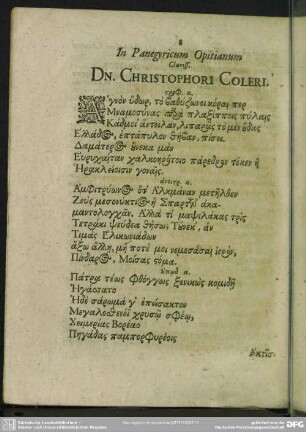 8
In Panegyricum Opitianum
Clariss.
DN. CHRISTOPHORI COLERI.
στρφ. α.
Ἁγνὸν ὕδωρ, τὸ βαθύζωνοι κόραι περ
Μναμοσύνας ποτὶ πλαξίπποις πύλαις
Κάδμοι ἄντειλαν, λιπαρᾶς τὸ μὲν ὕδας
Ελλάδ@, ἑπτάπυλον Θήβαν, πίσει.
Δαμάτερ@ οὕνεκα μὰν
Ευρυχαίταν χαλκοκρότοιο πάρεδρον τέκεν ἢ
Ἡρακλείοισιν γοναῖς.
ἀντιστρ. α.
Αμφιτρύων@ ὃν Αλκμάναν μετῆλθεν
Ζεὺς μεσονύκτι@ ἢ Σπαρτῶν ἀκα-
μαντολογχᾶν. Αλλά τι μαψιλάκας τρὶς
Τετράκι ψεύδεα θήσω; Τούνεκ', ἂν
Τιμὰς Ελικωνιάδων
ἄξω ἄλλῃ, μή ποτί μοι νεμεσάσαι ἱερὸν,
Πίνδαρ@, Μοίσας τόμα.
ἐπῳδ. α.
Πάτρᾳ τέως φθόγγως ξενικὼς κομιδῇ
Ηγάσατο
Ηδὲ σάρωμα γ' ἐπώσακτον
Μεγαλοσθενεῖ χρυσῷ σφέω,
Χειμερίας Βορέαο
Πηγάδας παμπορφυρέοις